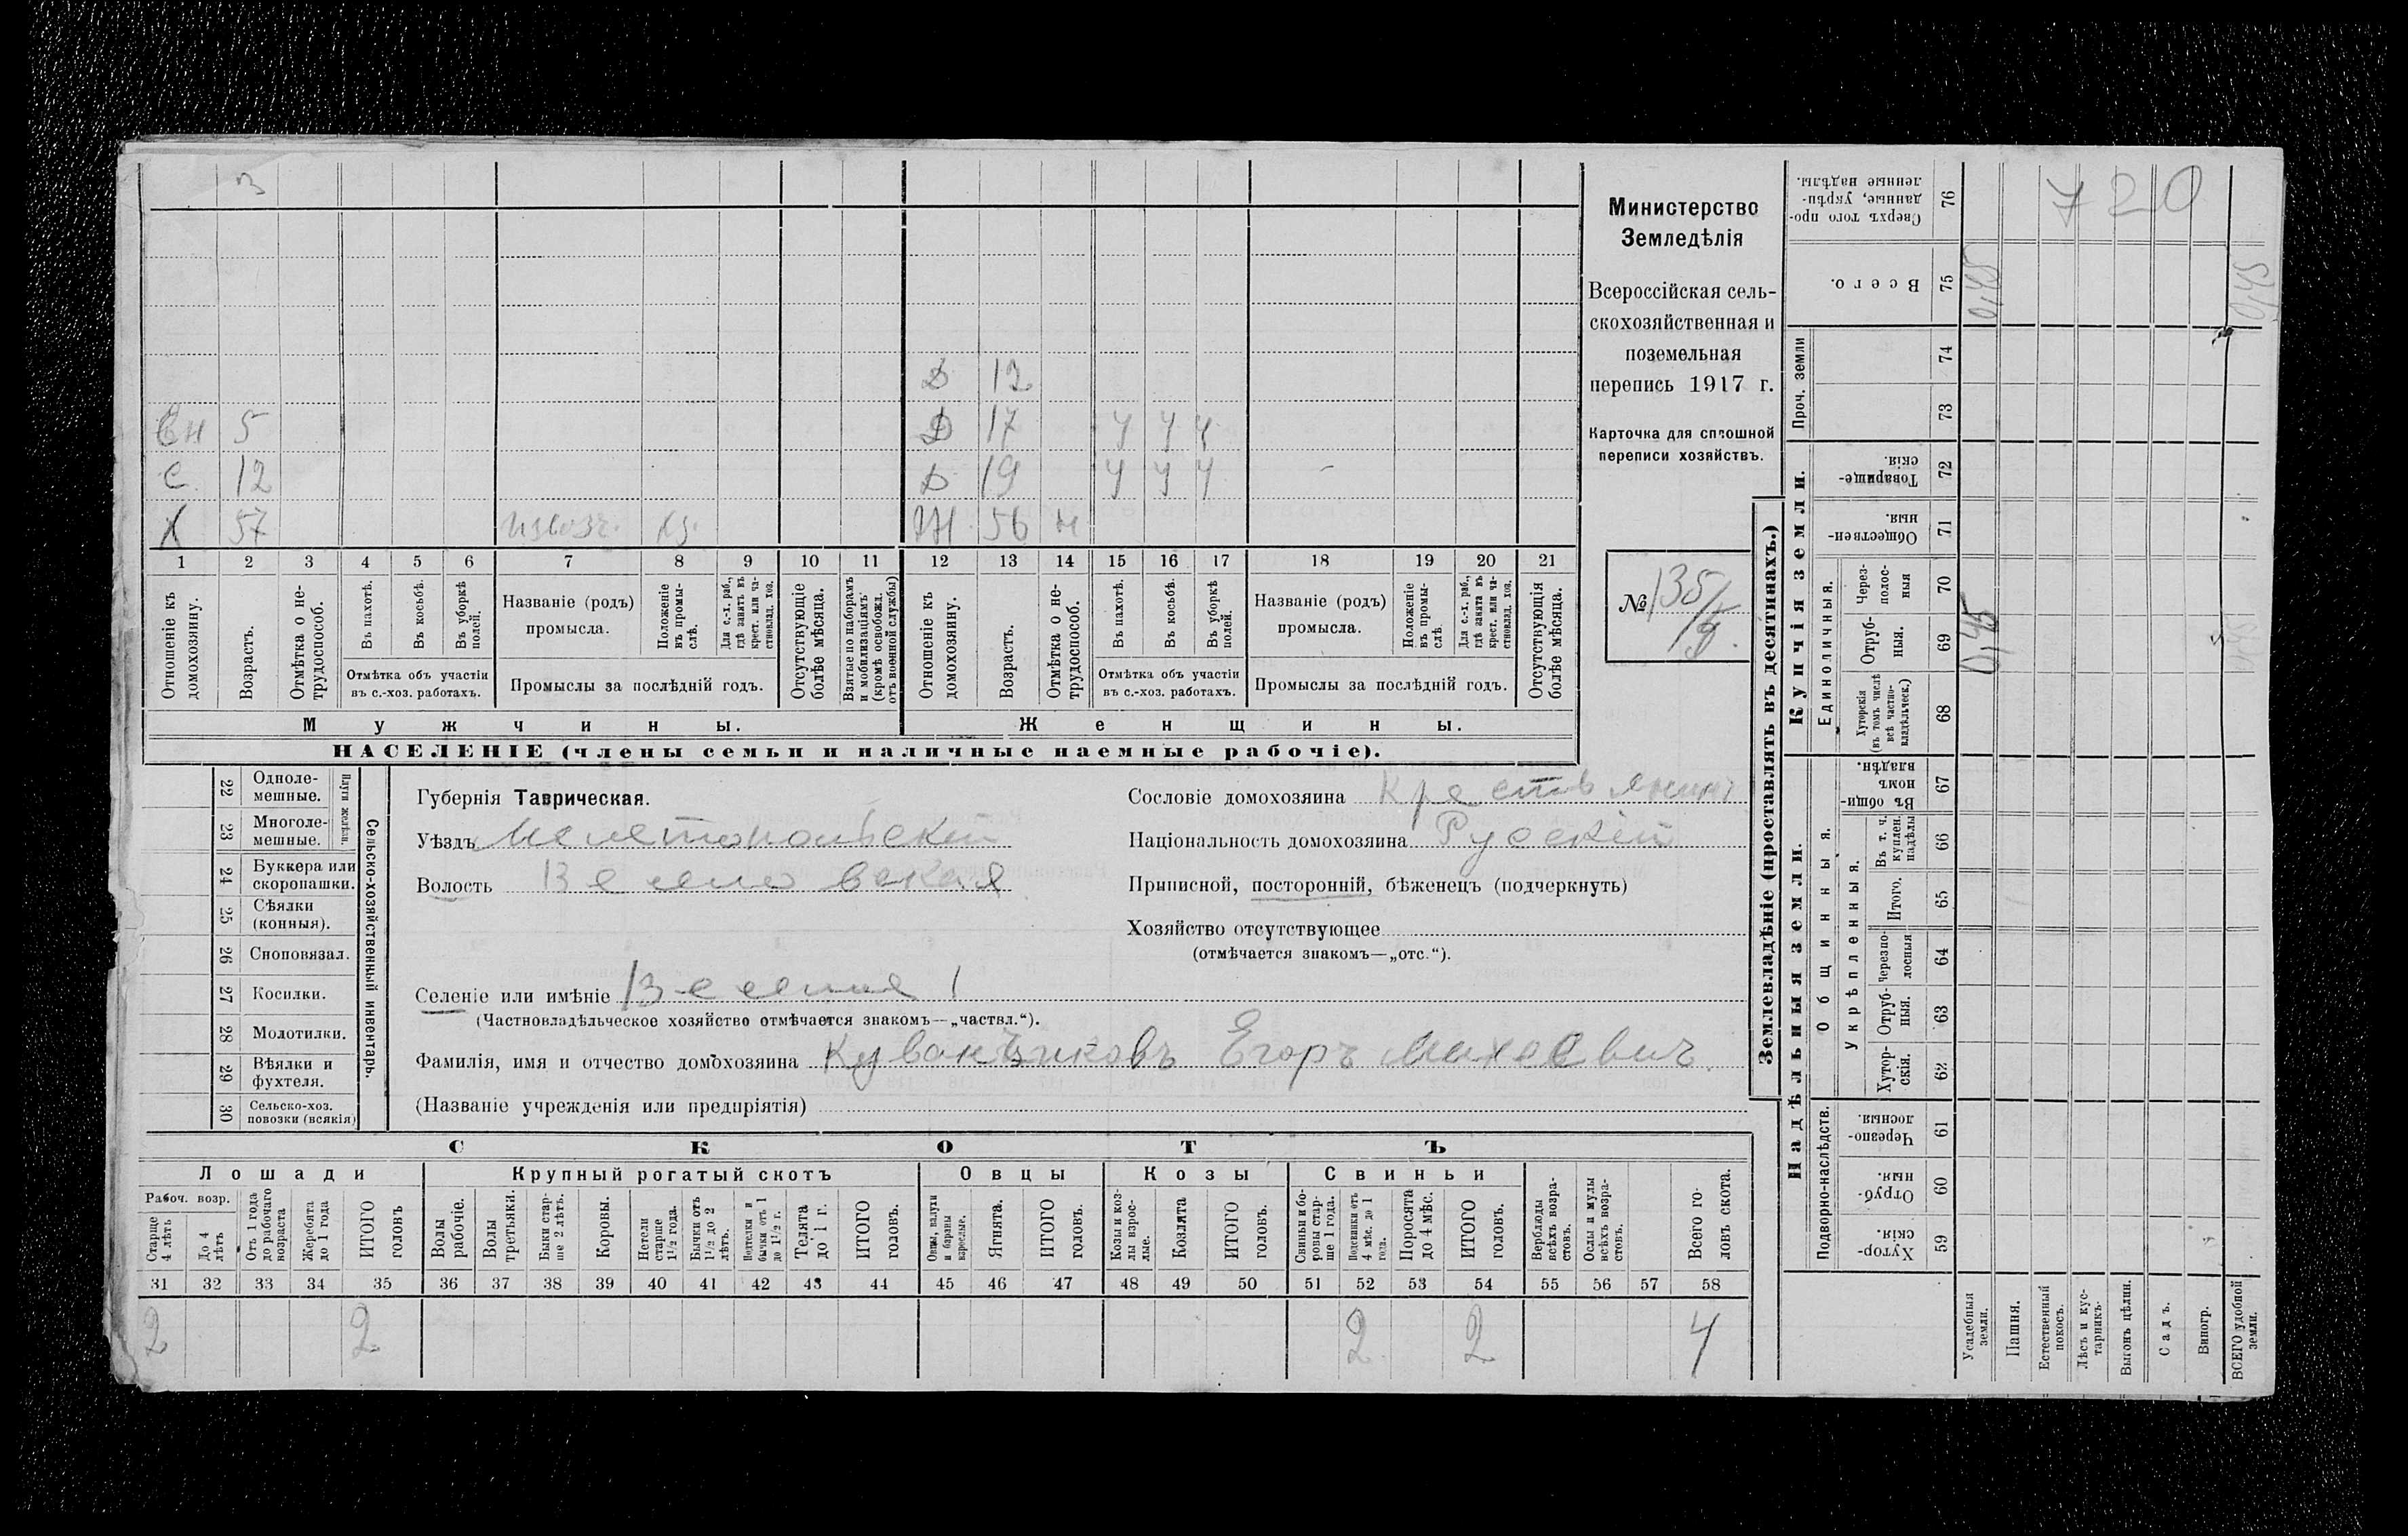 3
Д 12
Вн 5 Д 17 У У У
С 12 Д 19 У У У
Х 57 извозч. хз. Ж 56 н
1 2 3 4 5 6 7 8 9 10 11 12 13 14 15 16 17 18 19 20 21
Отношеніе къ домохозяину.
Возрастъ.
Отмѣтка о не-
трудоспособ.
Въ пахотѣ.
Въ косьбѣ.
Въ уборкѣ
полей.
Отмѣтка объ участіи
въ с.-хоз. работахъ.
Названіе (родъ)
промысла.
Положеніе
въ промы-
слѣ.
Для с.-х. раб.,
гдѣ занятъ въ
крест. или ча-
стновлад. хоз.
Промыслы за послѣдній годъ.
Отсутствующіе
болѣе мѣсяца.
Взятые по наборамъ
и мобилизаціямъ
(кромѣ освобожд.
отъ военной службы)
Отношеніе къ
домохозяину.
Возрастъ.
Отмѣтка о не-
трудоспособ.
Въ пахотѣ.
Въ косьбѣ.
Въ уборкѣ
полей.
Отмѣтка объ участіи
въ с.-хоз. работахъ.
Названіе (родъ)
промысла.
Положеніе
въ промы-
слѣ.
Для с.-х. раб.,
гдѣ занята въ
крест. или ча-
стновлад. хоз.
Промыслы за послѣдній годъ.
Отсутствующія
болѣе мѣсяца.
Мужчины.
Женщины.
НАСЕЛЕНІЕ (члены семьи и наличные наемные рабочіе).
Министерство
Земледѣлія
Всероссійская сель-
скохозяйственная и
поземельная
перепись 1917 г.
Карточка для сплошной
переписи хозяйствъ.
№ 135/
Губернія Таврическая.
Уѣздъ Мелитопольскій
Волость Веселовская
Селеніе или имѣніе Веселое 1
(Частновладѣльческое хозяйство отмѣчается знакомъ—„частвл.“).
Фамилія, имя и отчество домохозяина Егоръ Михеевич.
(Названіе учрежденія или предпріятія)
Сословіе домохозяина Крестьянинъ
Національность домохозяина Русскій
Приписной, посторонній, бѣженецъ (подчеркнуть)
Хозяйство отсутствующее
(отмѣчается знакомъ—„отс.“).
22 Одноле-
мешные.
23 Многоле-
мешные.
Плуги желѣзн.
24 Буккера или
скоропашки.
25 Сѣялки
(конныя).
26 Сноповязал.
27 Косилки.
28 Молотилки.
29 Вѣялки и
фухтеля.
30 Сельско-хоз.
повозки (всякія)
Сельско-хозяйственный инвентарь.
СКОТЪ
Лошади
Крупный рогатый скотъ
Овцы
Козы
Свиньи
Рабоч. возр.
Старше
4 лѣтъ
До 4
лѣтъ
Отъ 1 года
до рабочаго
возраста
Жеребята
до 1 года
ИТОГО
головъ
Волы
рабочіе.
Волы
третьяки.
Быки стар-
ше 2 лѣтъ.
Коровы.
Нетели
старше
1½ года.
Бычки отъ
1½ до 2
лѣтъ.
Нетелки и
бычки отъ 1
до 1½ г.
Телята
до 1 г.
ИТОГО
головъ.
Овцы, валухи
и бараны
взрослые.
Ягнята.
ИТОГО
головъ.
Козы и коз-
лы взрос-
лые.
Козлята
ИТОГО
головъ.
Свиньи и бо-
ровы стар-
ше 1 года.
Подсвинки отъ
4 мѣс. до 1
года.
Поросята
до 4 мѣс.
ИТОГО
головъ.
Верблюды
всѣхъ возра-
стовъ.
Ослы и мулы
всѣхъ возра-
стовъ.
Всего го-
ловъ скота.
31 32 33 34 35 36 37 38 39 40 41 42 43 44 45 46 47 48 49 50 51 52 53 54 55 56 57 58
2 2 2 2 4
Землевладѣніе (проставлять въ десятинахъ.)
Купчія земли.
Надѣльныя земли.
Проч. земли
Сверхъ того про-
данные, укрѣп-
ленные надѣлы.
76
720
Всего.
75
0,45
0,45
74
73
Товарище-
скія.
72
Обществен-
ныя.
71
Единоличныя.
Через-
полос-
ныя
70
Отруб-
ныя.
69
0,45
0,45
Хуторскія
(въ томъ числѣ
всѣ частно-
владѣльческ.)
68
Общинныя.
Въ общи-
номъ
владѣн.
67
Укрѣпленныя.
Въ т. ч.
куплен.
надѣлы
66
Итого.
65
Черезпо-
лосныя
64
Отруб-
ныя.
63
Хутор-
скія.
62
Подворно-наслѣдств.
Черезпо-
лосныя.
61
Отруб-
ныя.
60
Хутор-
скія.
59
Усадебныя
земли.
Пашня.
Естественный
покосъ.
Лѣсъ и кус-
тарникъ.
Выгонъ цѣлин.
Садъ.
Виногр.
ВСЕГО удобной
земли.